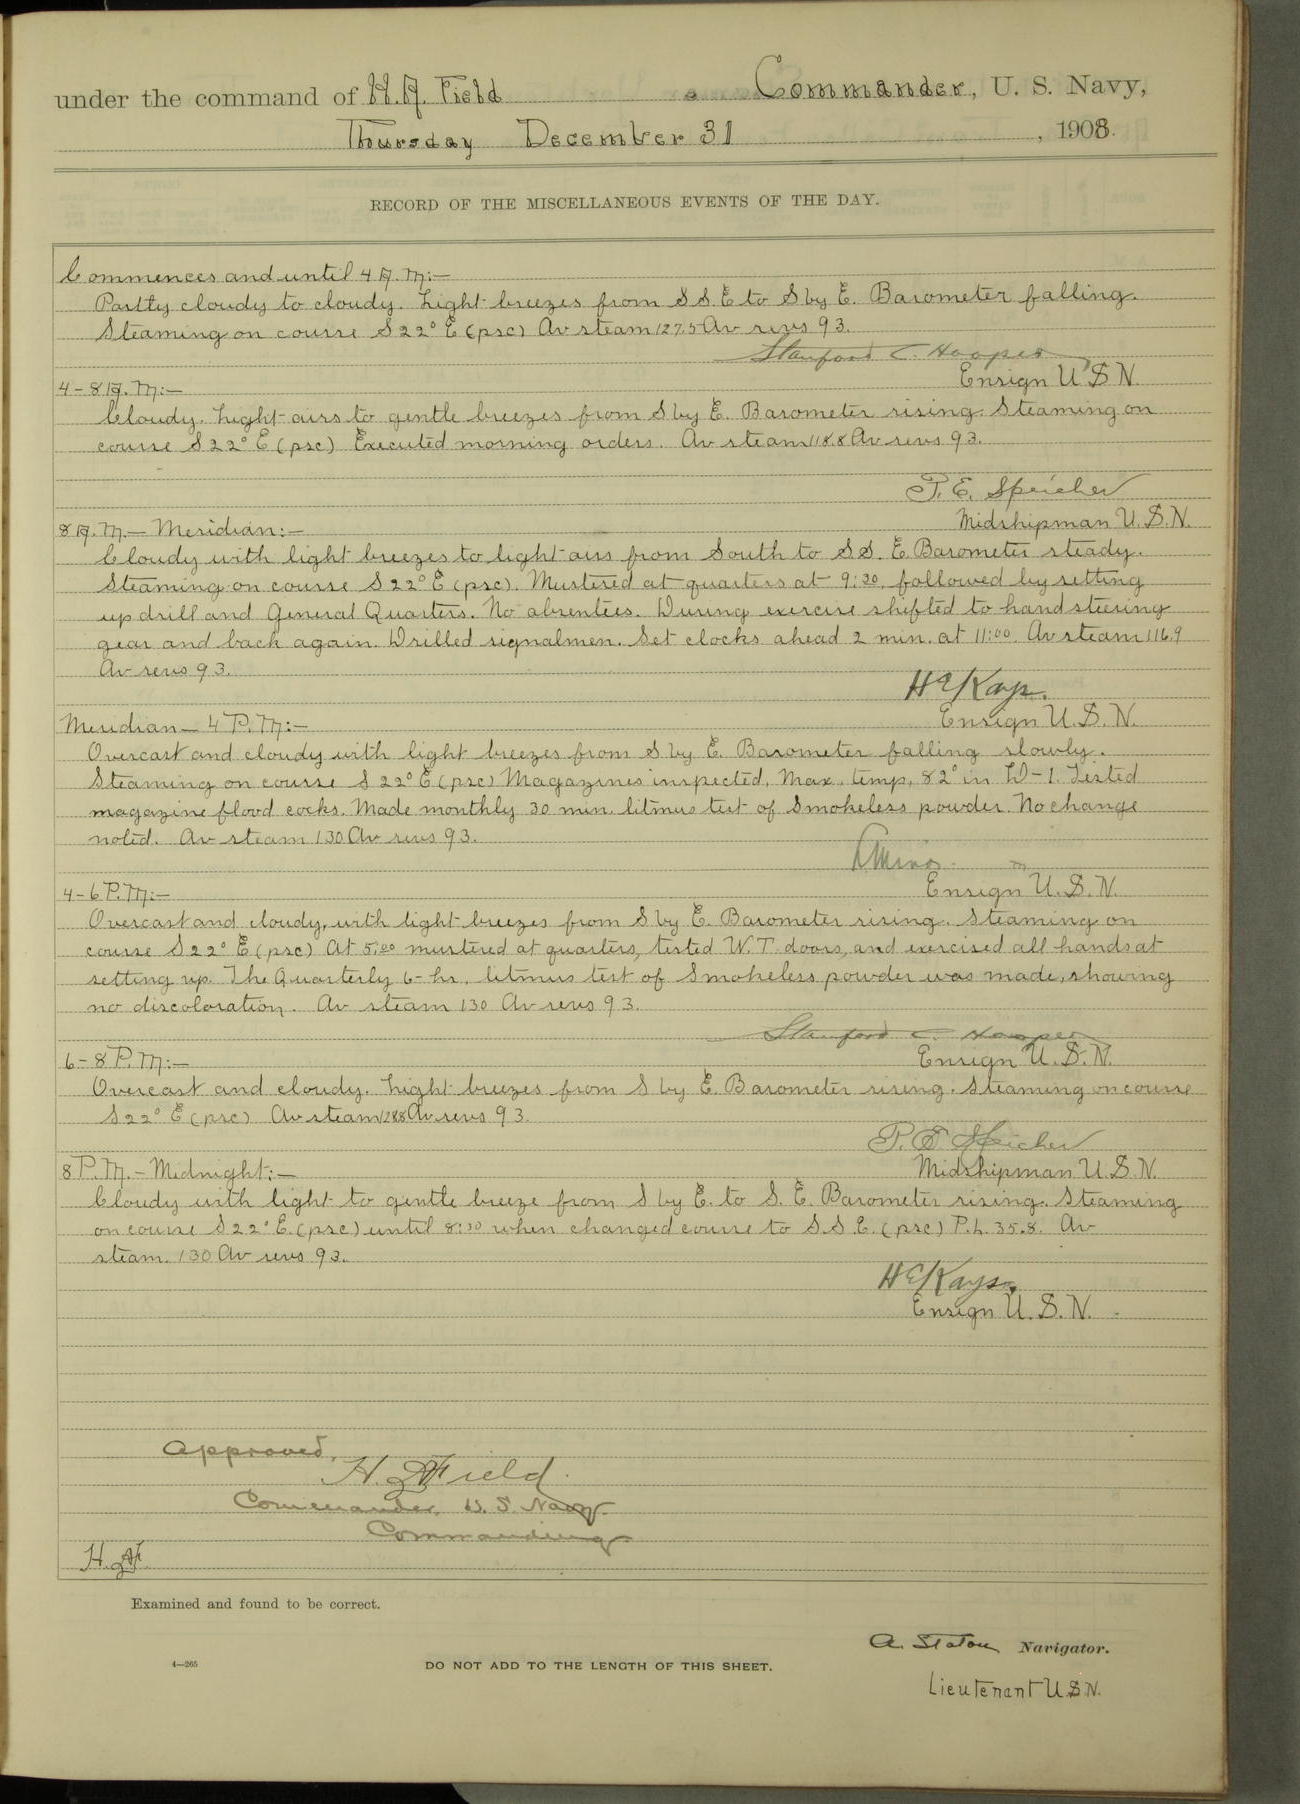 under the command of H. A. Field Commander, U. S. Navy,
Thursday December 31, 1908.
RECORD OF THE MISCELLANEOUS EVENTS OF THE DAY.
Commences and until 4 A. M:—
Partly cloudy to cloudy. Light breezes from S.S.E to S by E. Barometer falling.
Steaming on course S 22° E (psc) Av steam 127.5 Av revs 93.
Stanford C. Hooper
Ensign U S N.
4-8 A. M:—
Cloudy. Light airs to gentle breezes from S by E. Barometer rising. Steaming on
course S 22° E (psc) Executed morning orders. Av steam 118.8 Av revs 93.
P. E. Speicher
Midshipman U. S. N.
8 A. M.— Meridian:—
Cloudy with light breezes to light airs from South to S S. E. Barometer steady.
Steaming on course S 22° E (psc). Mustered at quarters at 9:30, followed by setting
up drill and General Quarters. No absentees. During exercise shifted to hand steering
gear and back again. Drilled signalmen. Set clocks ahead 2 min. at 11:00 Av steam 116.9
Av revs 93.
H E Kays.
Ensign U. S. N.
Meridian — 4 P. M:—
Overcast and cloudy with light breezes from S by E. Barometer falling slowly.
Steaming on course S 22° E (psc) Magazines inspected. Max. temp, 82° in D-1. Tested
magazine flood cocks. Made monthly 30 min. litmus test of Smokeless powder. No change
noted. Av steam 130 Av revs 93.
Ensign U. S. N.
4-6 P. M:—
Overcast and cloudy, with light breezes from S by E. Barometer rising. Steaming on
course S 22° E (psc) At 5:00 mustered at quarters, tested W. T. doors, and exercised all hands at
setting up. The Quarterly 6-hr. litmus test of Smokeless powder was made, showing
no discoloration. Av steam 130 Av revs 93.
Stanford C. Hooper
Ensign U. S. N.
6-8 P. M:—
Overcast and cloudy. Light breezes from S by E. Barometer rising. Steaming on course
S 22° E (psc) Av steam 128.8 Av revs 93.
P. E Speicher
Midshipman U. S. N.
8 P. M. - Midnight:—
Cloudy with light to gentle breeze from S by E. to S. E. Barometer rising. Steaming
on course S 22° E. (psc) until 8:30 when changed course to S. S E. (psc) P. L. 35.8. Av
steam. 130 Av revs 93.
H E Kays.
Ensign U. S. N.
Approved,
H. A. Field
Commander, U. S. Navy.
Commanding
H. A. F.
Examined and found to be correct.
A. Staton Navigator.
4—265
DO NOT ADD TO THE LENGTH OF THIS SHEET.
Lieutenant U. S. N.